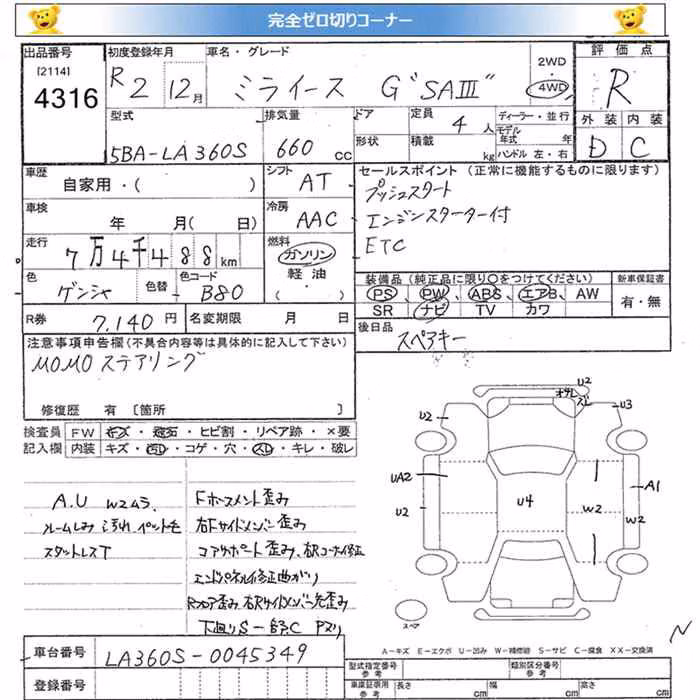 完全ゼロ切りコーナー
出品番号
[2114]
4316
初度登録年月
R2 12月
車名・グレード
ミライース G"SAⅢ"
2WD
・
4WD
評価点
R
型式
5BA-LA360S
排気量
660 cc
ドア
形状
定員 4 人
積載 kg
ディーラー・並行
モデル年式 年
ハンドル 左・右
外装 内装
D C
車歴
自家用・( )
シフト
AT
セールスポイント (正常に機能するものに限ります)
プッシュスタート
エンジンスターター付
ETC
車検
年 月( 日)
冷房
AAC
走行
7万4千488km
燃料
ガソリン
軽油
( )
色
ゲンシャ
色替
色コード
B80
装備品(純正品に限り○をつけてください)
PS、PW、ABS、エアB、AW
SR ナビ TV カワ
新車保証書
有・無
R券
7,140 円
名変期限 月 日
後日品
スペアキー
注意事項申告欄(不具合内容等は具体的に記入して下さい)
MOMOステアリング
修復歴 有 [箇所 ]
検査員
記入欄
FW キズ・飛石・ヒビ割・リペア跡・×要
内装 キズ・汚れ・コゲ・穴・スレ・キレ・破レ
A.U W2ムラ
ルームしみ 汚れ、ペット毛
スタットレスT
Fホースメント歪み
右Fサイドメンバー歪み
コアサポート歪み、右Rコーナー修正
エンドパネル修正曲がり
Rフロア歪み 右Rサイドメンバー先歪み
下廻りS一部C Pヌリ
U2
オサレ
ズレ
U2
U3
UA2
U2
U4
W2
A1
W2
スペア
A-キズ E-エクボ U-凹み W-補修跡 S-サビ C-腐食 XX-交換済
車台番号
LA360S-0045349
登録番号
型式指定番号
参考
類別区分番号
参考
車庫証明用
参考
長さ cm
幅 cm
高さ cm